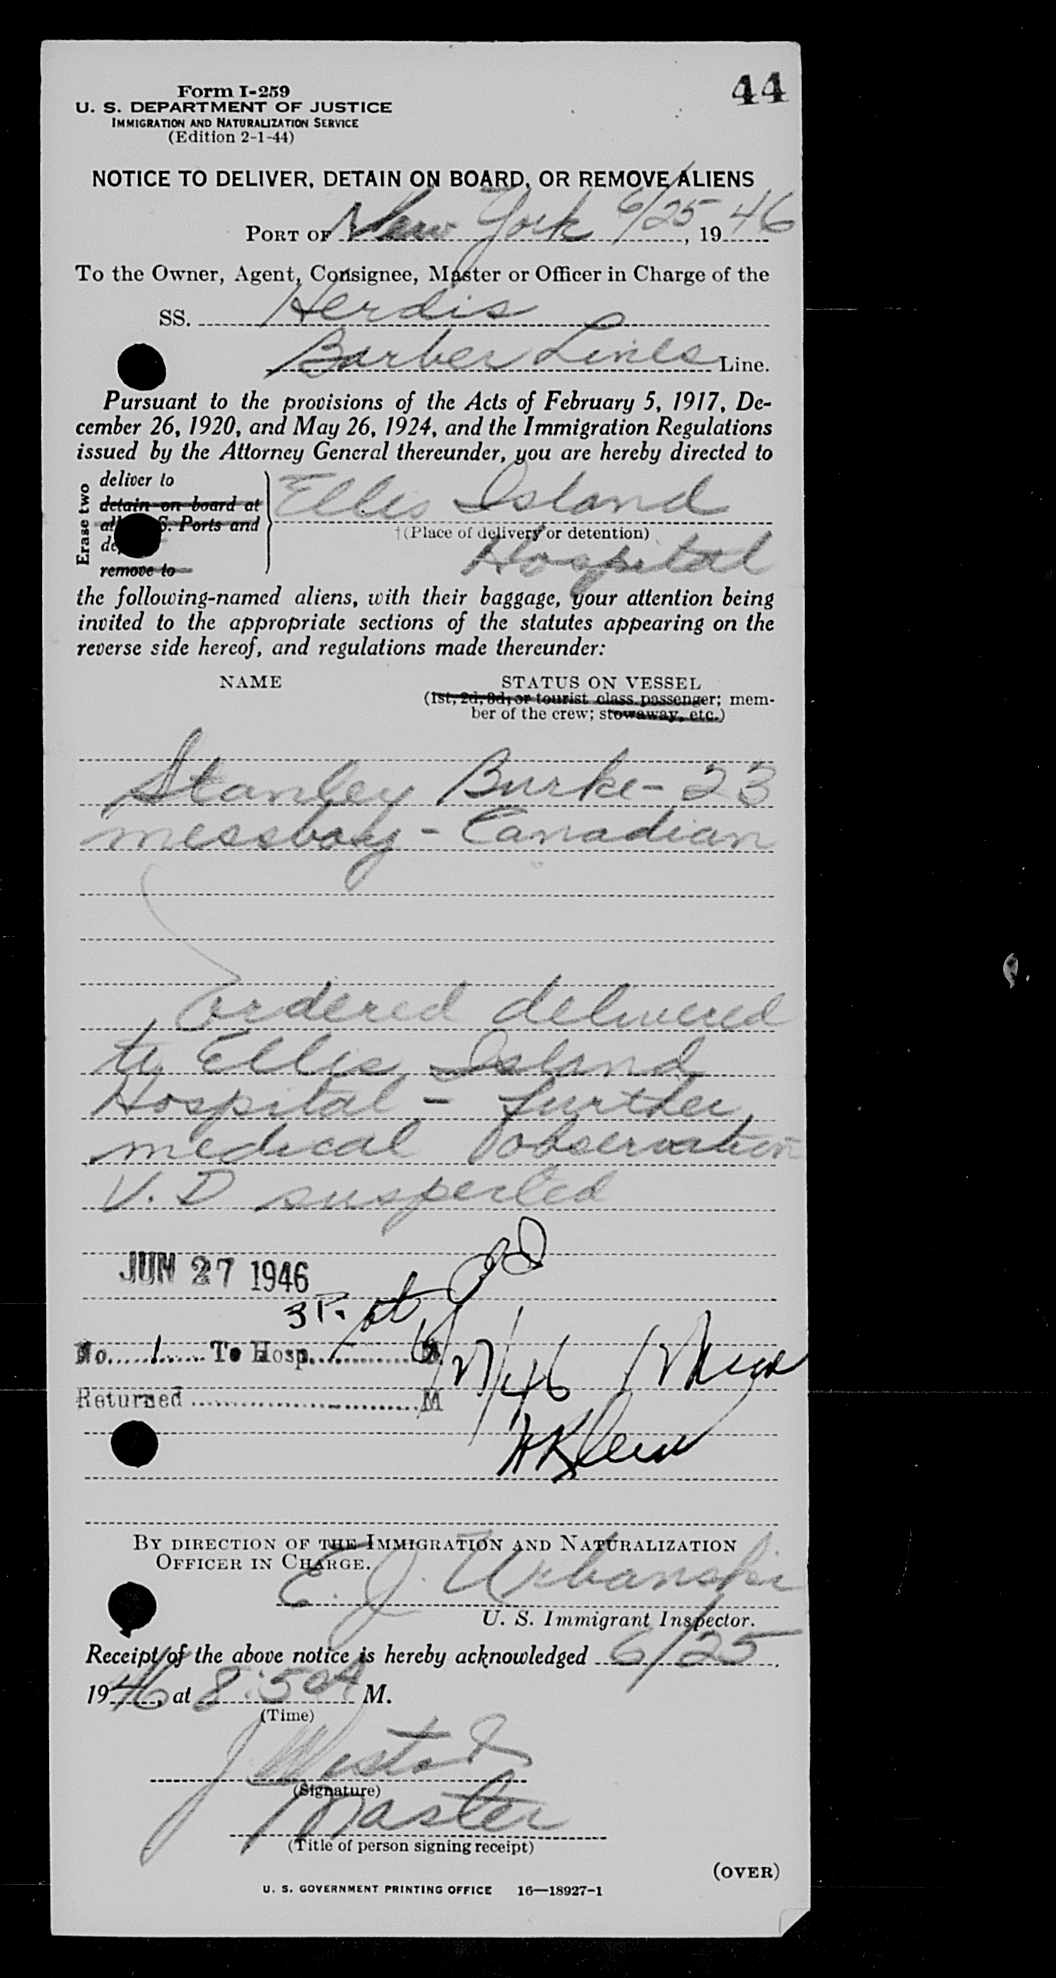 44
Form I-259
U. S. DEPARTMENT OF JUSTICE
IMMIGRATION AND NATURALIZATION SERVICE
(Edition 2-1-44)
NOTICE TO DELIVER, DETAIN ON BOARD, OR REMOVE ALIENS
PORT OF New York 6/25, 1946
To the Owner, Agent, Consignee, Master or Officer in Charge of the
SS. Herdis
Barber Lines Line.
Pursuant to the provisions of the Acts of February 5, 1917, De-
cember 26, 1920, and May 26, 1924, and the Immigration Regulations
issued by the Attorney General thereunder, you are hereby directed to
Erase two
deliver to
detain on board at
S. Ports and
remove to
Ellis Island
†(Place of delivery or detention)
Hospital
the following-named aliens, with their baggage, your attention being
invited to the appropriate sections of the statutes appearing on the
reverse side hereof, and regulations made thereunder:
NAME STATUS ON VESSEL
(1st, 2d, 3d, or tourist class passenger; mem-
ber of the crew; stowaway, etc.)
Stanley Burke - 23
messboy - Canadian
ordered delivered
to Ellis Island
Hospital - further
medical observation
V. D suspected
JUN 27 1946
3 P.
No. 1 To Hosp. M.
Returned M
H Klein
BY DIRECTION OF THE IMMIGRATION AND NATURALIZATION
OFFICER IN CHARGE.
E. J. Urbanski
U. S. Immigrant Inspector.
Receipt of the above notice is hereby acknowledged 6/25,
1946, at 8:50 A M.
(Time)
J
(Signature)
Master
(Title of person signing receipt)
(OVER)
U. S. GOVERNMENT PRINTING OFFICE 16—18927-1